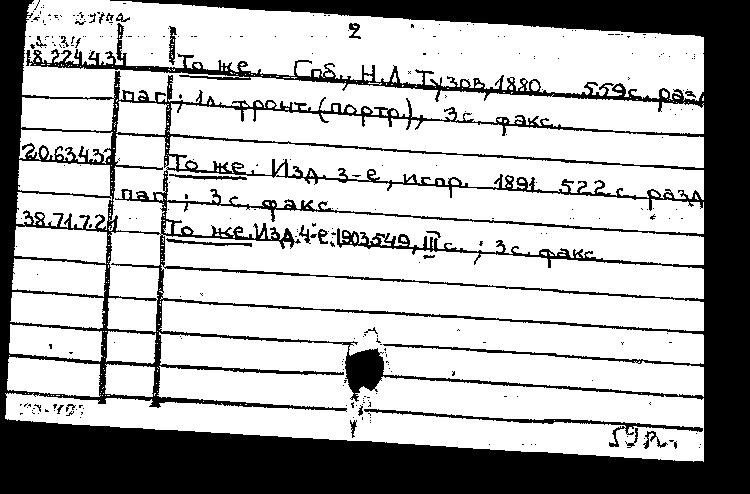 2
18.224.4.34 То же. Спб., Н.Л. Тузов, 1880. 559 с. разд.
паг; 1 л. фронт. (портр.), 3 с. факс.
20.63.4.32 То же. Изд. 3-е, испр. 1891. 522 с. разд
паг; 3 с. факс.
38.71.7.21 То же. Изд. 4-е. 1903. 549, III с. ; 3 с. факс.